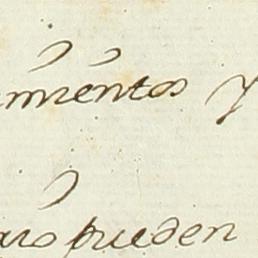 mientos y
pueden